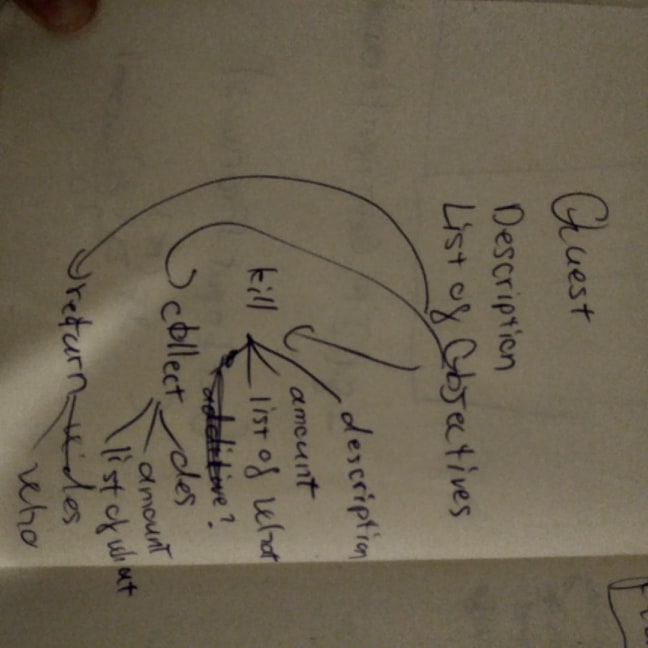 Quest
Description
List of Objectives
description
amount
kill
list of what
additive?
collect
des
amount
list of what
return
des
who